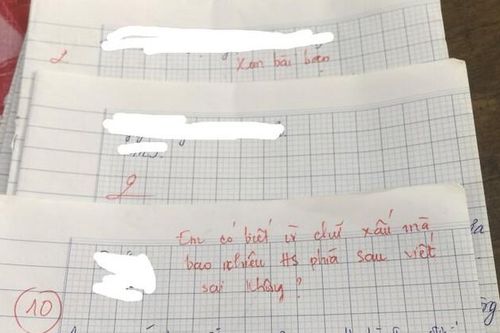 2
Xem bài bạn
2
10
Em có biết vì chữ xấu mà
bao nhiêu HS phía sau viết
sai không?